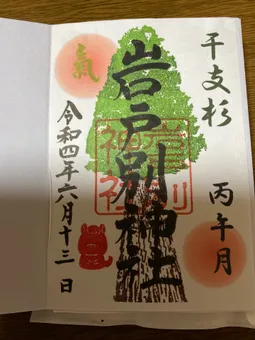 干支杉
丙午月
岩戸別神社
氣
令和四年六月十三日